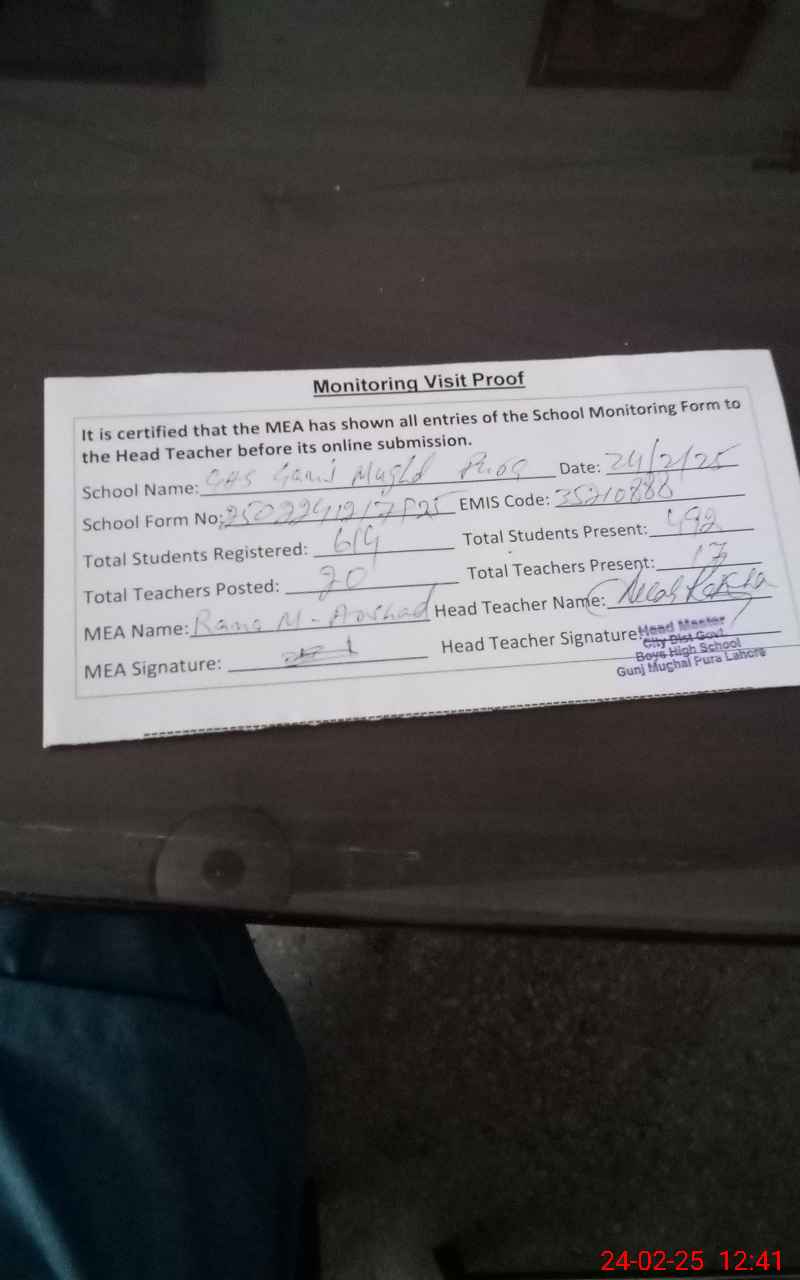 Monitoring Visit Proof
It is certified that the MEA has shown all entries of the School Monitoring Form to
the Head Teacher before its online submission.
School Name: GHS Date: 24/2/25
School Form No: EMIS Code: 35210888
Total Students Registered: 614 Total Students Present: 492
Total Teachers Posted: 20 Total Teachers Present: 17
MEA Name: Rana M. Arshad Head Teacher Name:
MEA Signature: Head Teacher Signature:
Head Master
City Dist Govt
Boys High School
Gunj Mughal Pura Lahore
24-02-25 12:41